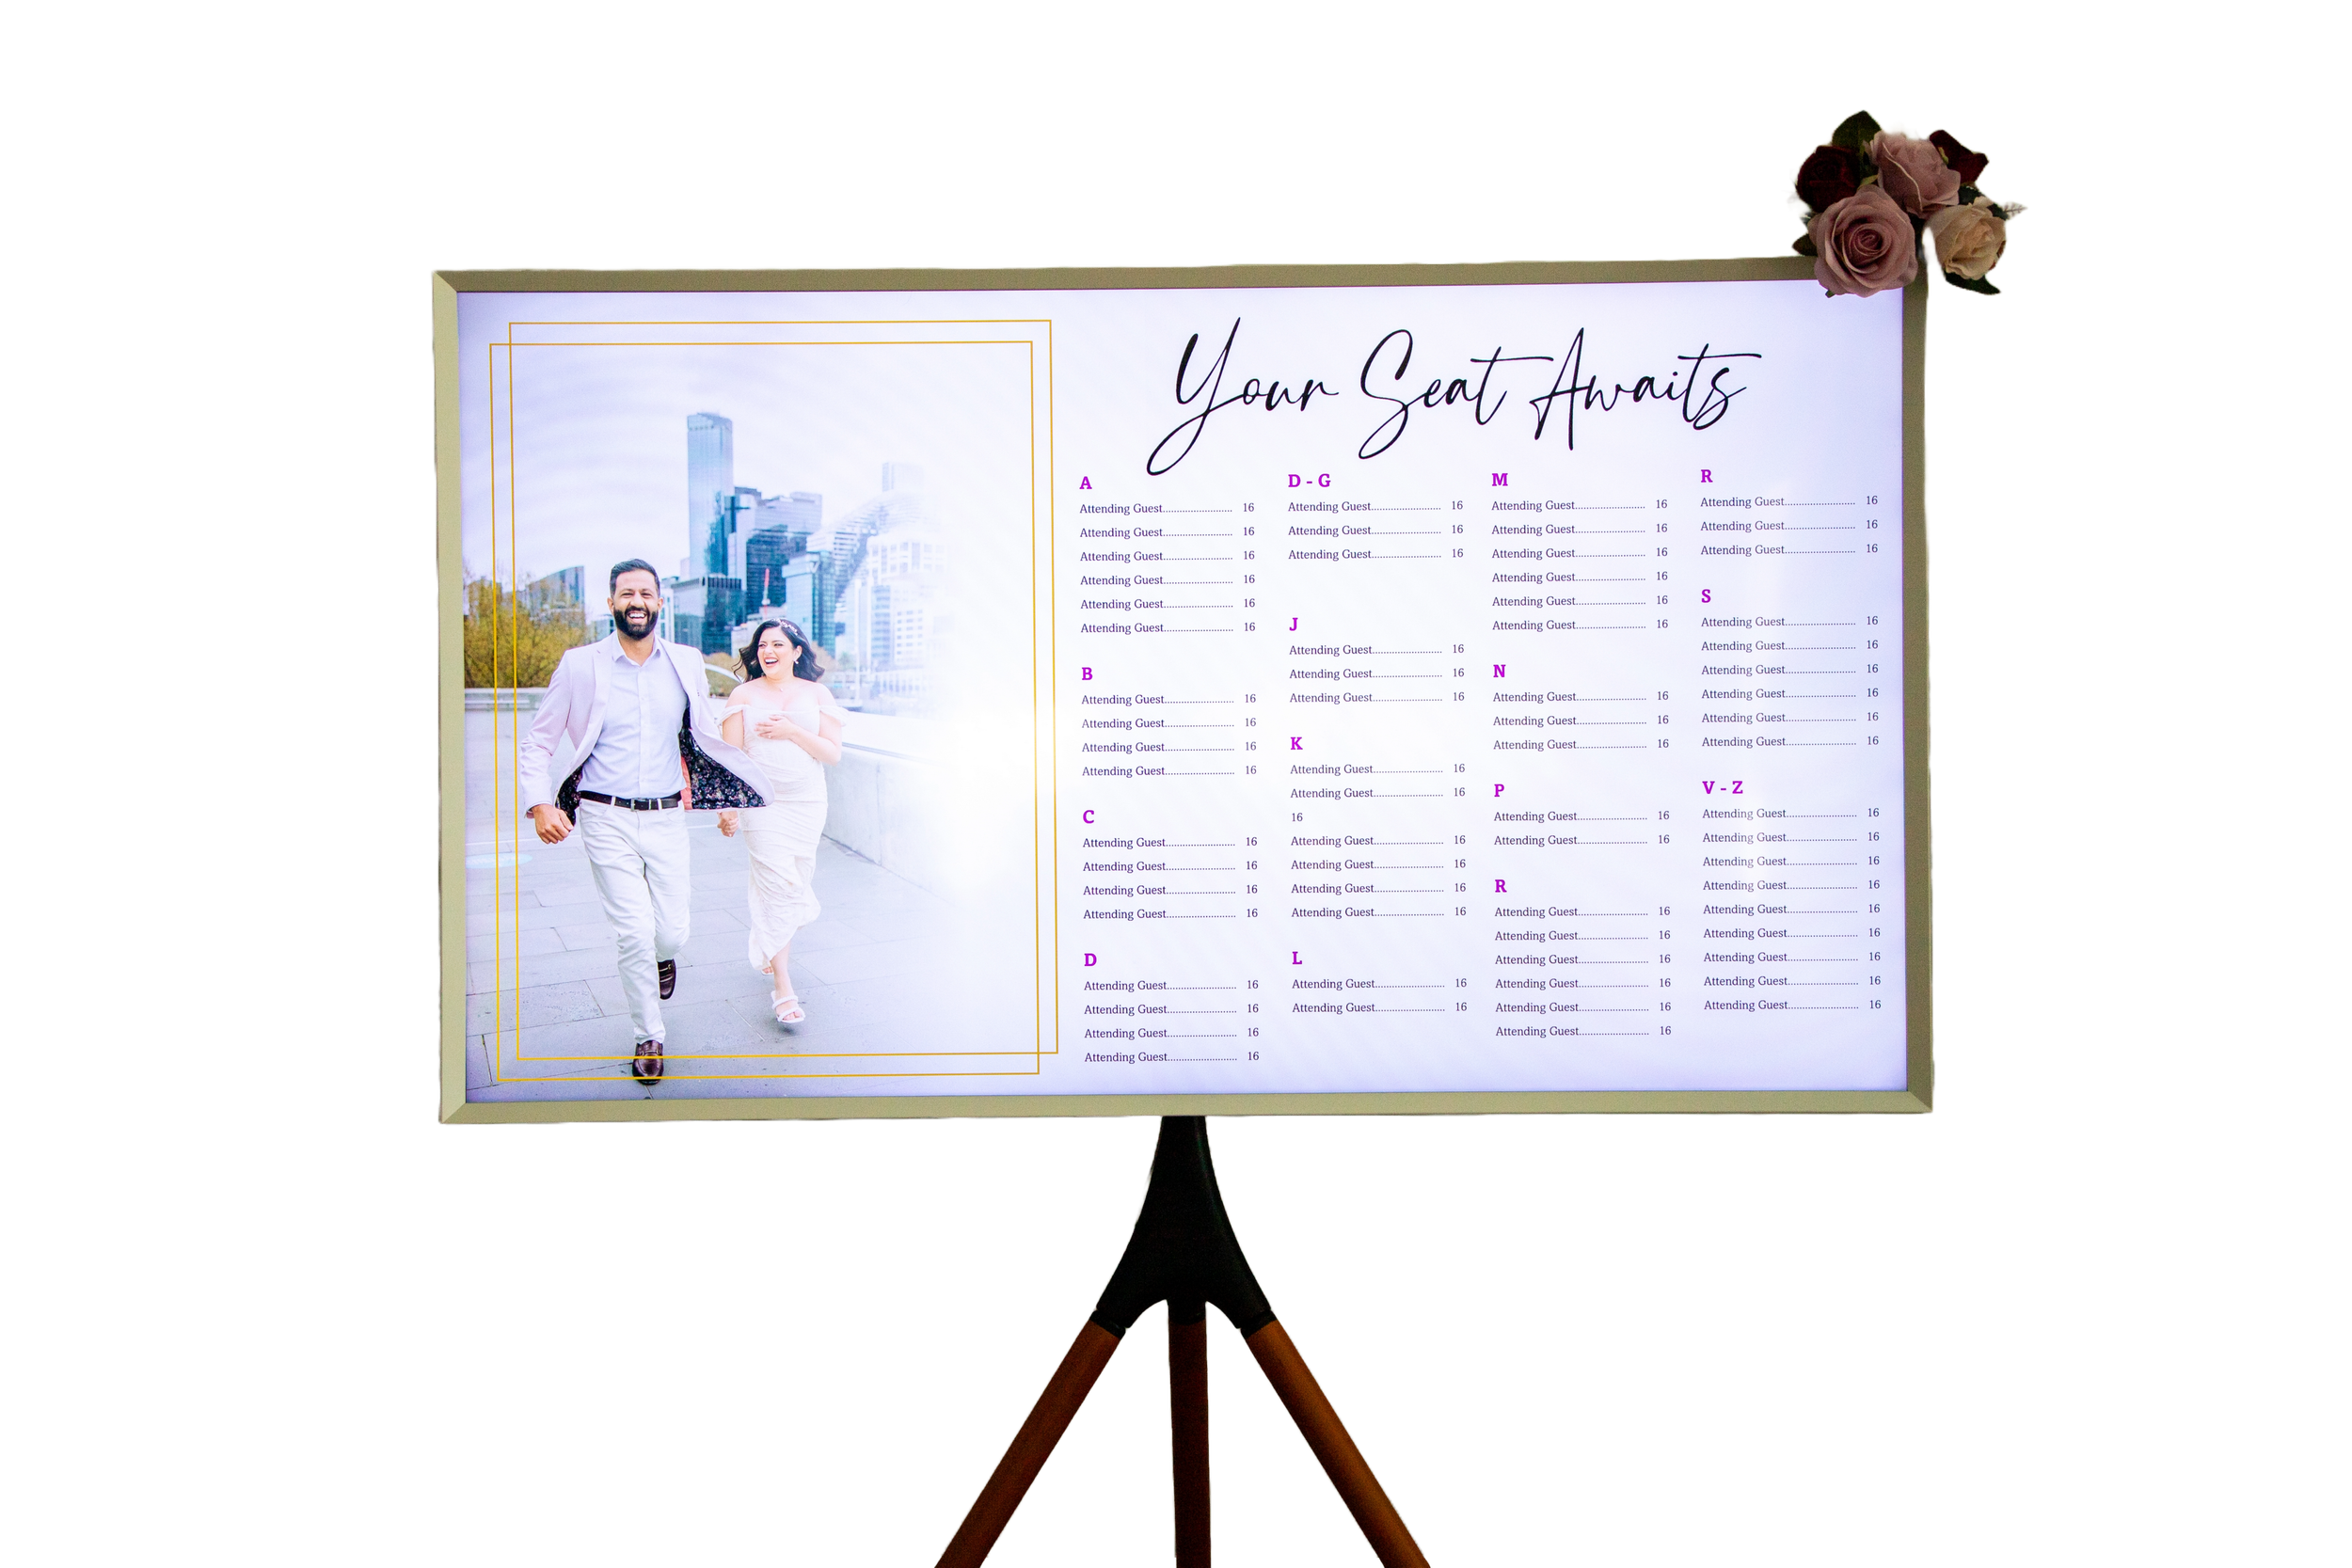 Your Seat Awaits
A
Attending Guest.......................... 16
Attending Guest.......................... 16
Attending Guest.......................... 16
Attending Guest.......................... 16
Attending Guest.......................... 16
Attending Guest.......................... 16
B
Attending Guest.......................... 16
Attending Guest.......................... 16
Attending Guest.......................... 16
Attending Guest.......................... 16
C
Attending Guest.......................... 16
Attending Guest.......................... 16
Attending Guest.......................... 16
Attending Guest.......................... 16
D
Attending Guest.......................... 16
Attending Guest.......................... 16
Attending Guest.......................... 16
Attending Guest.......................... 16
D - G
Attending Guest.......................... 16
Attending Guest.......................... 16
Attending Guest.......................... 16
J
Attending Guest.......................... 16
Attending Guest.......................... 16
Attending Guest.......................... 16
K
Attending Guest.......................... 16
Attending Guest.......................... 16
16
Attending Guest.......................... 16
Attending Guest.......................... 16
Attending Guest.......................... 16
Attending Guest.......................... 16
L
Attending Guest.......................... 16
Attending Guest.......................... 16
M
Attending Guest.......................... 16
Attending Guest.......................... 16
Attending Guest.......................... 16
Attending Guest.......................... 16
Attending Guest.......................... 16
Attending Guest.......................... 16
N
Attending Guest.......................... 16
Attending Guest.......................... 16
Attending Guest.......................... 16
P
Attending Guest.......................... 16
Attending Guest.......................... 16
R
Attending Guest.......................... 16
Attending Guest.......................... 16
Attending Guest.......................... 16
Attending Guest.......................... 16
Attending Guest.......................... 16
Attending Guest.......................... 16
R
Attending Guest.......................... 16
Attending Guest.......................... 16
Attending Guest.......................... 16
S
Attending Guest.......................... 16
Attending Guest.......................... 16
Attending Guest.......................... 16
Attending Guest.......................... 16
Attending Guest.......................... 16
Attending Guest.......................... 16
V - Z
Attending Guest.......................... 16
Attending Guest.......................... 16
Attending Guest.......................... 16
Attending Guest.......................... 16
Attending Guest.......................... 16
Attending Guest.......................... 16
Attending Guest.......................... 16
Attending Guest.......................... 16
Attending Guest.......................... 16